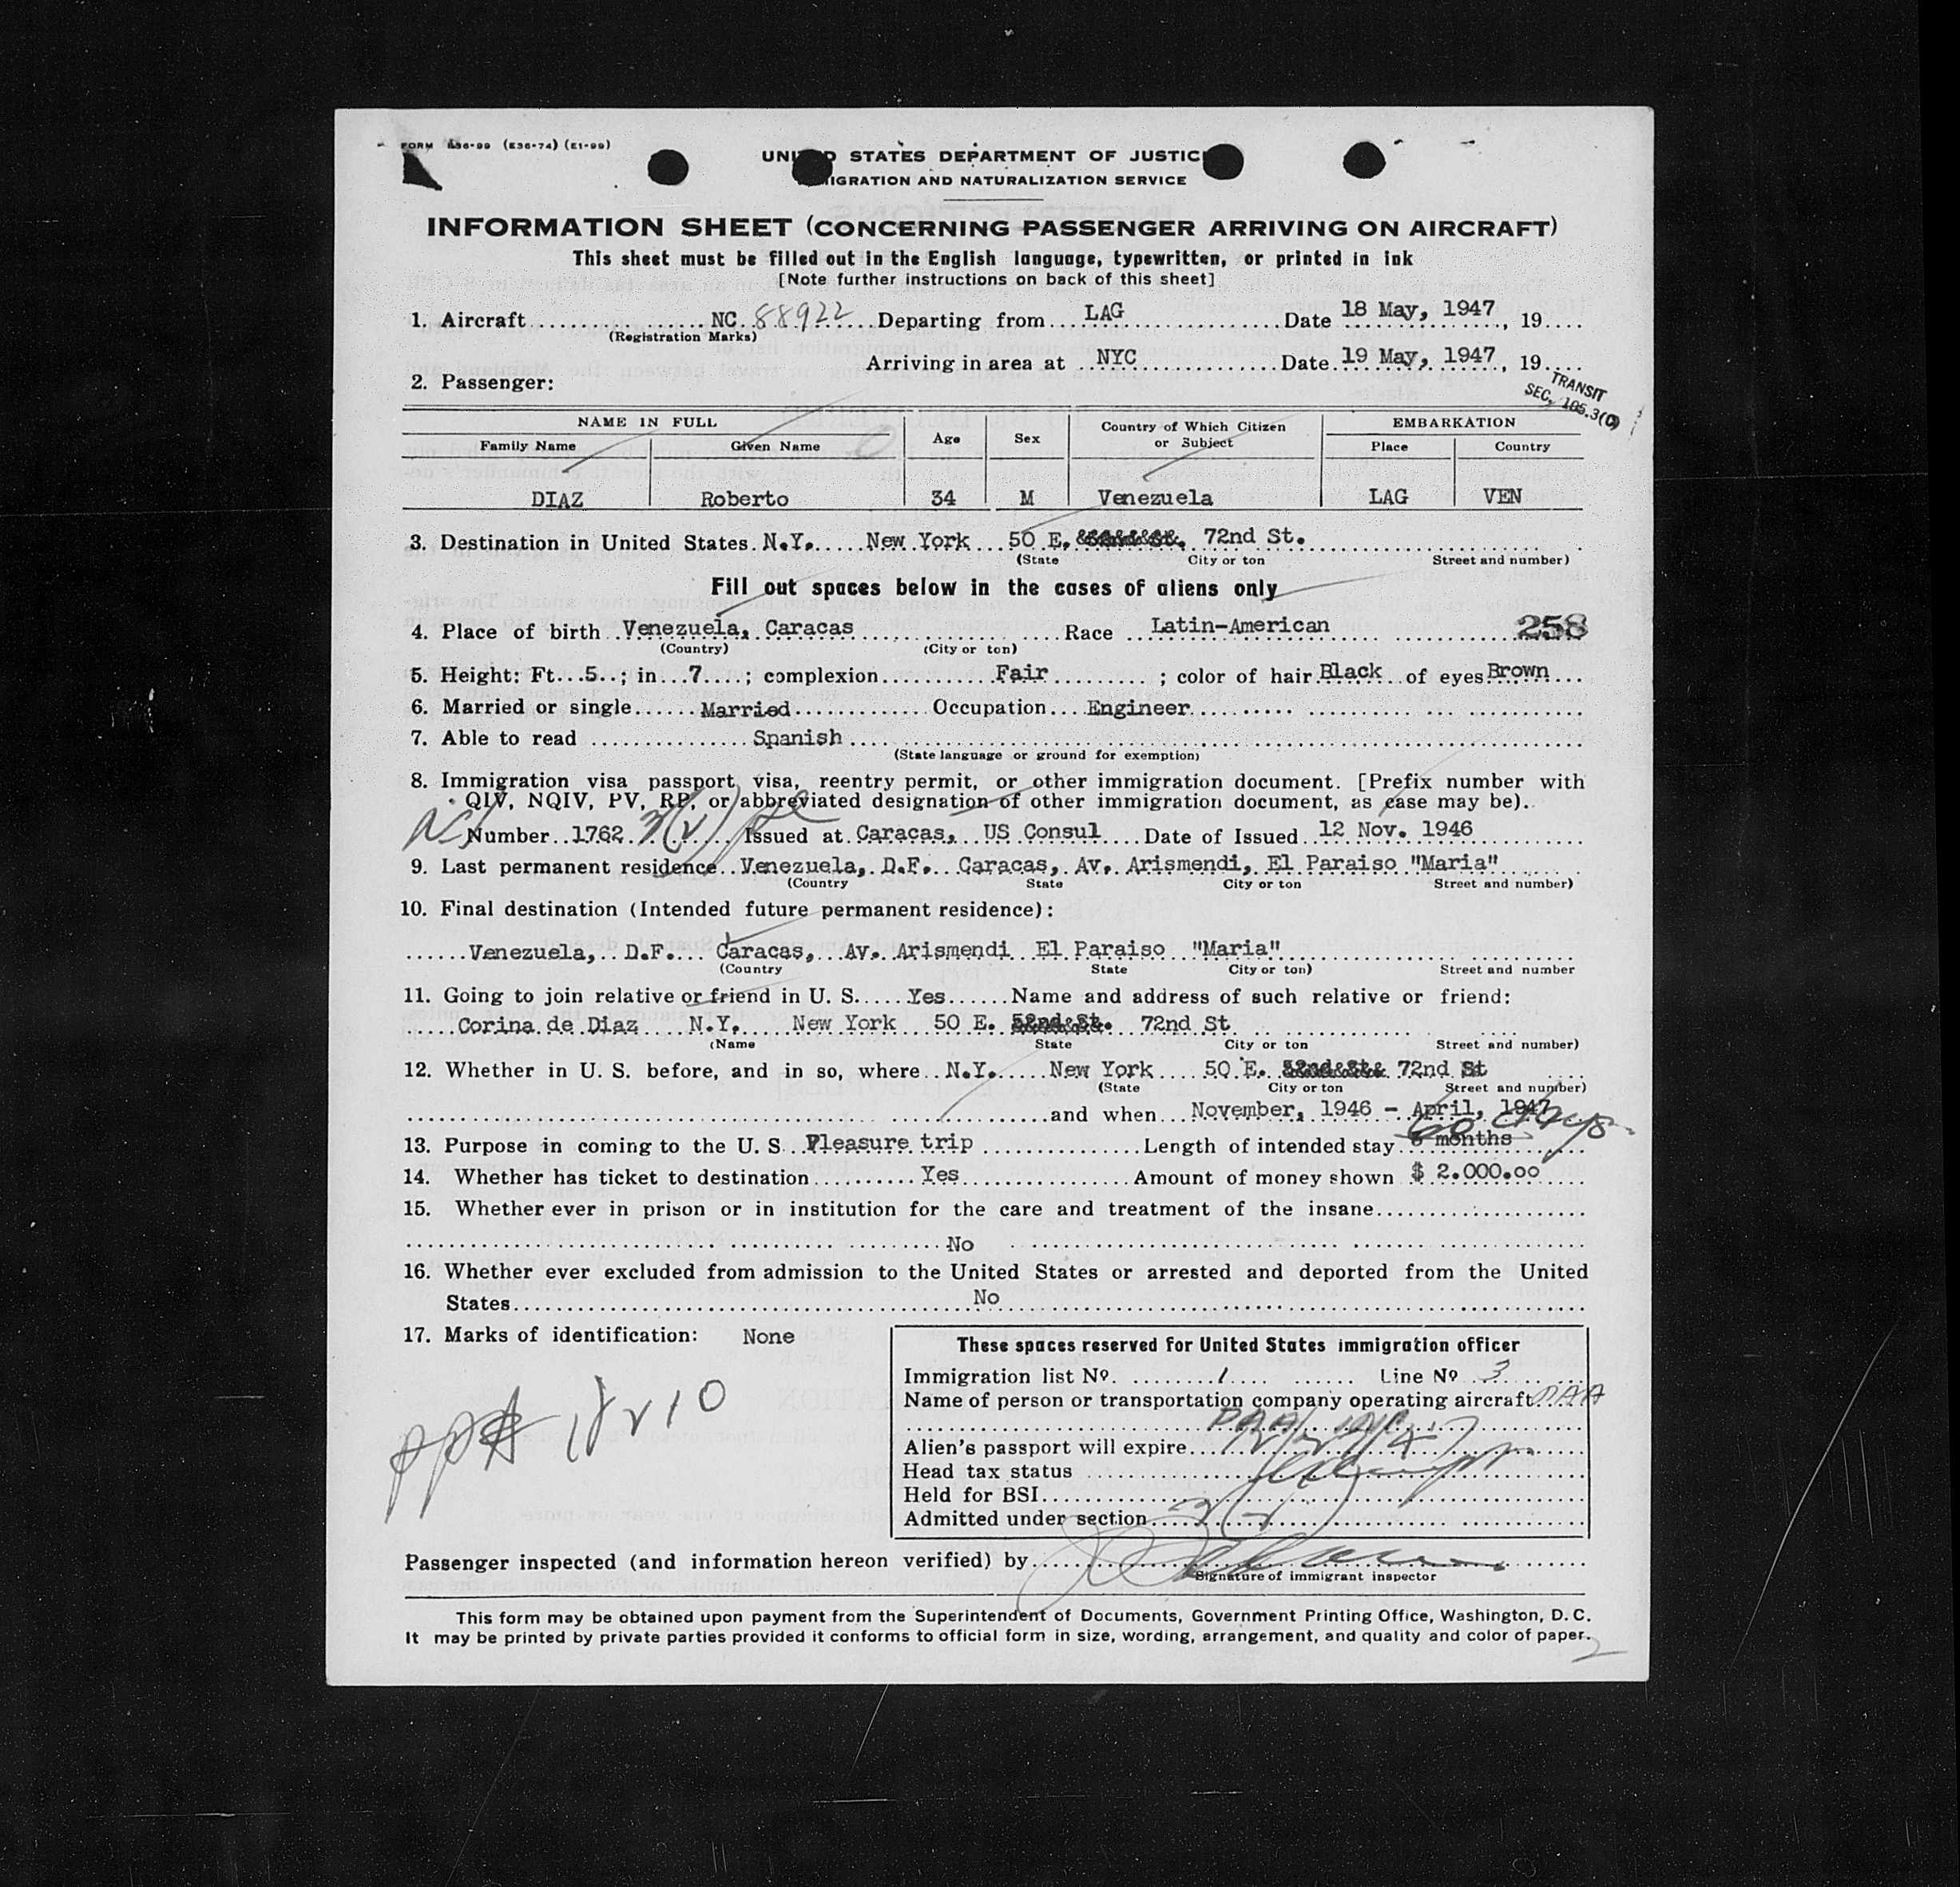 FORM (E36-74) (E1-99)
STATES DEPARTMENT OF JUSTIC
IGRATION AND NATURALIZATION SERVICE
INFORMATION SHEET (CONCERNING PASSENGER ARRIVING ON AIRCRAFT)
This sheet must be filled out in the English language, typewritten, or printed in ink
[Note further instructions on back of this sheet]
1. Aircraft NC 88922 Departing from LAG Date 18 May, 1947, 19
(Registration Marks)
Arriving in area at NYC Date 19 May, 1947, 19
2. Passenger:
TRANSIT
SEC. 105.3(C)
NAME IN FULL Age Sex Country of Which Citizen or Subject EMBARKATION
Family Name Given Name Place Country
DIAZ Roberto 34 M Venezuela LAG VEN
3. Destination in United States N.Y. New York 50 E. 72nd St.
(State City or ton Street and number)
Fill out spaces below in the cases of aliens only
4. Place of birth Venezuela, Caracas Race Latin-American 258
(Country) (City or ton)
5. Height: Ft. 5; in 7; complexion Fair; color of hair Black of eyes Brown
6. Married or single Married Occupation Engineer
7. Able to read Spanish
(State language or ground for exemption)
8. Immigration visa passport, visa, reentry permit, or other immigration document. [Prefix number with
QIV, NQIV, PV, RP, or abbreviated designation of other immigration document, as case may be).
Number 1762 3(2) Issued at Caracas, US Consul Date of Issued 12 Nov. 1946
9. Last permanent residence Venezuela, D.F. Caracas, Av. Arismendi, El Paraiso "Maria"
(Country State City or ton Street and number)
10. Final destination (Intended future permanent residence):
Venezuela, D.F. Caracas, Av. Arismendi El Paraiso "Maria"
(Country State City or ton) Street and number
11. Going to join relative or friend in U. S. Yes Name and address of such relative or friend:
Corina de Diaz N.Y. New York 50 E. 52nd St. 72nd St
(Name State City or ton Street and number)
12. Whether in U. S. before, and in so, where N.Y. New York 50 E. 52nd St. 72nd St
(State City or ton Street and number)
and when November, 1946 - April, 1947
60 days
13. Purpose in coming to the U. S. Pleasure trip Length of intended stay months
14. Whether has ticket to destination Yes Amount of money shown $ 2.000.oo
15. Whether ever in prison or in institution for the care and treatment of the insane
No
16. Whether ever excluded from admission to the United States or arrested and deported from the United
States No
17. Marks of identification: None
These spaces reserved for United States immigration officer
Immigration list No. 1 Line No 3
Name of person or transportation company operating aircraft PAA
Alien's passport will expire
Head tax status exempt
Held for BSI
Admitted under section 3(2)
18210
Passenger inspected (and information hereon verified) by
Signature of immigrant inspector
This form may be obtained upon payment from the Superintendent of Documents, Government Printing Office, Washington, D. C.
It may be printed by private parties provided it conforms to official form in size, wording, arrangement, and quality and color of paper.
2